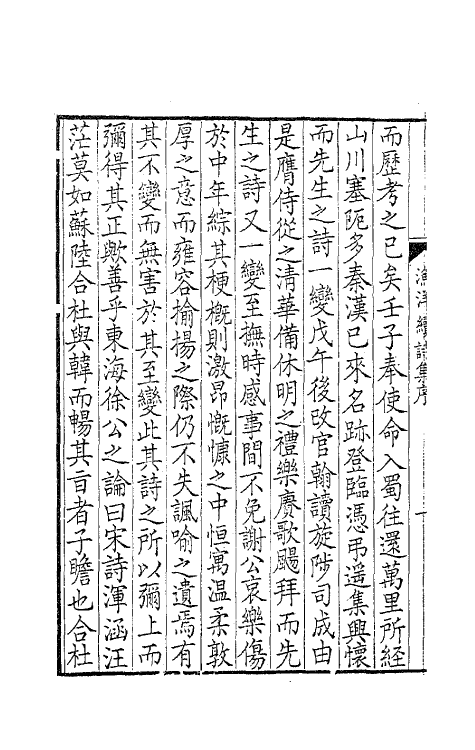 漁洋續詩集序
而歷考之已矣壬子奉使命入蜀往還萬里所經
山川塞阨多秦漢已來名跡登臨憑弔遥集興懷
而先生之詩一變戊午後改官翰讀旋陟司成由
是膺侍從之清華備休明之禮樂賡歌颺拜而先
生之詩又一變至撫時感事間不免謝公哀樂傷
於中年綜其梗概則激昂慨慷之中恒寓温柔敦
厚之意而雍容揄揚之際仍不失諷喻之遺焉有
其不變而無害於其至變此其詩之所以彌上而
彌得其正歟善乎東海徐公之論曰宋詩渾涵汪
茫莫如蘇陸合杜與韓而暢其㫖者子瞻也合杜